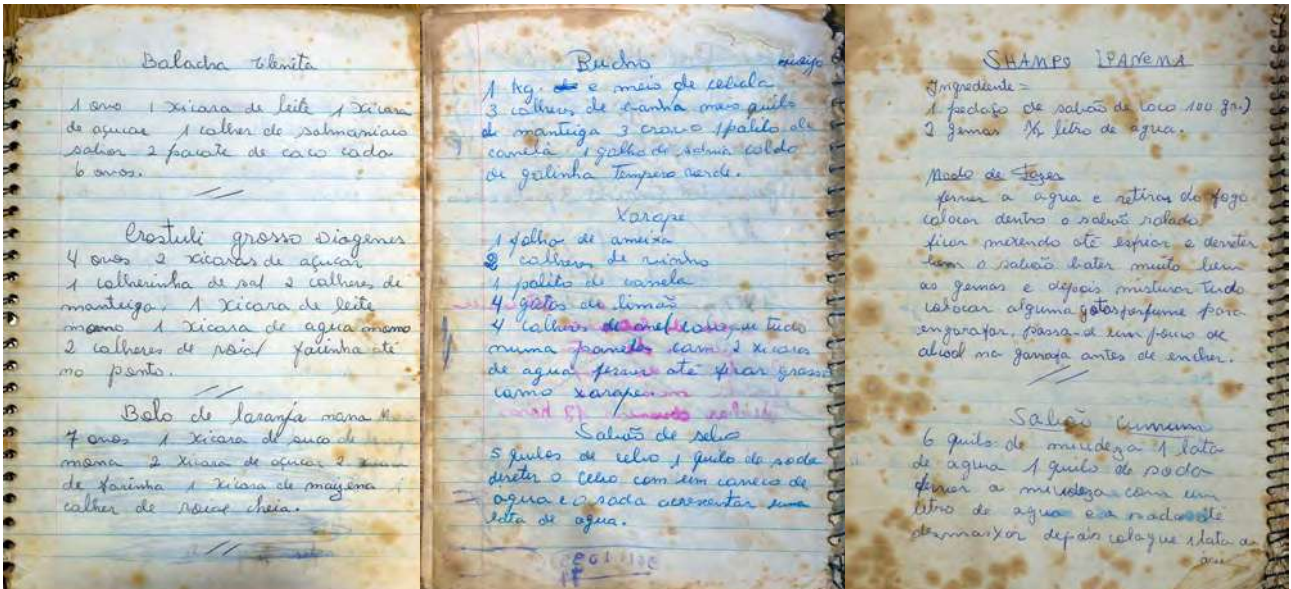 Balacha Elenita
1 ovo 1 xicara de leite 1 xicara
de açucar 1 colher de salmaniaco
sabor 2 pacote de coco cada
6 ovos.
Crostuli grosso Diogenes
4 ovos 2 xicaras de açucar
1 colherinha de sal 2 colheres de
manteiga. 1 xicara de leite
morno 1 xicara de agua morno
2 colheres de roial farinha até
no ponto.
Bolo de laranja mana
7 ovos 1 xicara de suco de
mana 2 xicara de açucar 2
de farinha 1 xicara de maizena
colher de roial cheia.
Bucho
1 kg. e meio de cebola
3 colheres de banha meio quilo
de manteiga 3 cravo 1 palito de
canela 1 galho de salvia caldo
de galinha Tempero verde.
Xarope
1 folha de ameixa
2 colheres de vinho
1 palito de canela
4 gotas de limão
4 colheres de mel coloque tudo
numa panela com 2 xicaras
de agua ferver até ficar grosso
como xarope
Sabão de sebo
5 quilos de cebo 1 quilo de soda
direter o cebo com um caneco de
agua e o soda acresentar uma
lata de agua.
SHAMPO IPANEMA
Ingrediente =
1 pedaço de sabão de coco 100 gr.)
2 gemas 1/2 litro de agua.
Modo de Fazer
ferver a agua e retirar do fogo
colocar dentro o sabão ralado
ficar mexendo até esfriar e derreter
bem o sabão bater muito bem
as gemas e depois misturar tudo
colocar alguma gotas perfume para
engarafar, passa-se um pouco de
alcool na garrafa antes de encher.
Sabão cumum
6 quilo de miudeza 1 lata
de agua 1 quilo de soda
ferver a miudeza com um
litro de agua e a soda até
desmanxar depois coloque 1 lata de